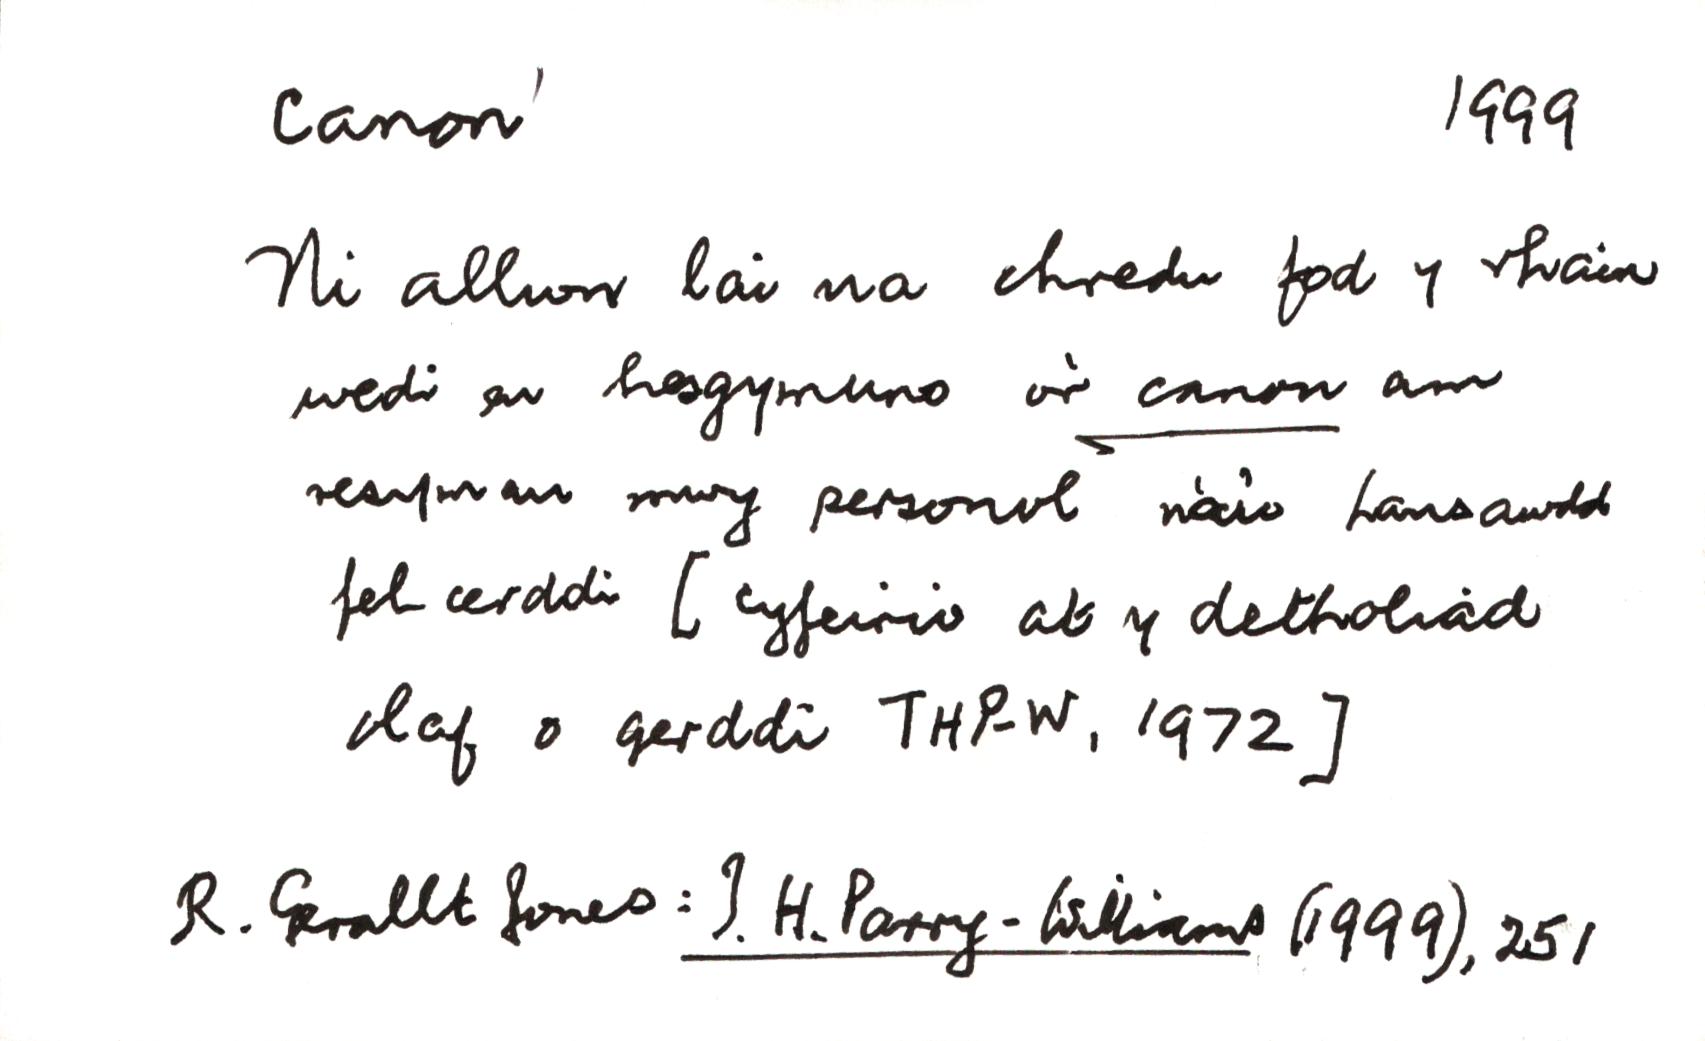 Canon' 1999
Ni allwn lai na chredu fod y rhain
wedi eu hesgymuno o'r canon am
resymau mwy personol na'u hansawdd
fel cerddi [cyfeirio at y detholiad
olaf o gerddi THP-W, 1972]
R. Gerallt Jones: T. H. Parry-Williams (1999), 251